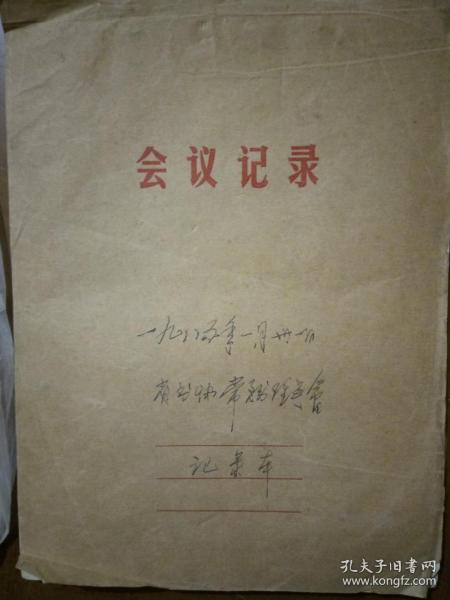 会议记录
一九八五年一月卅一日
省书协常务理事会
记录本
孔夫子旧书网
www.kongfz.com